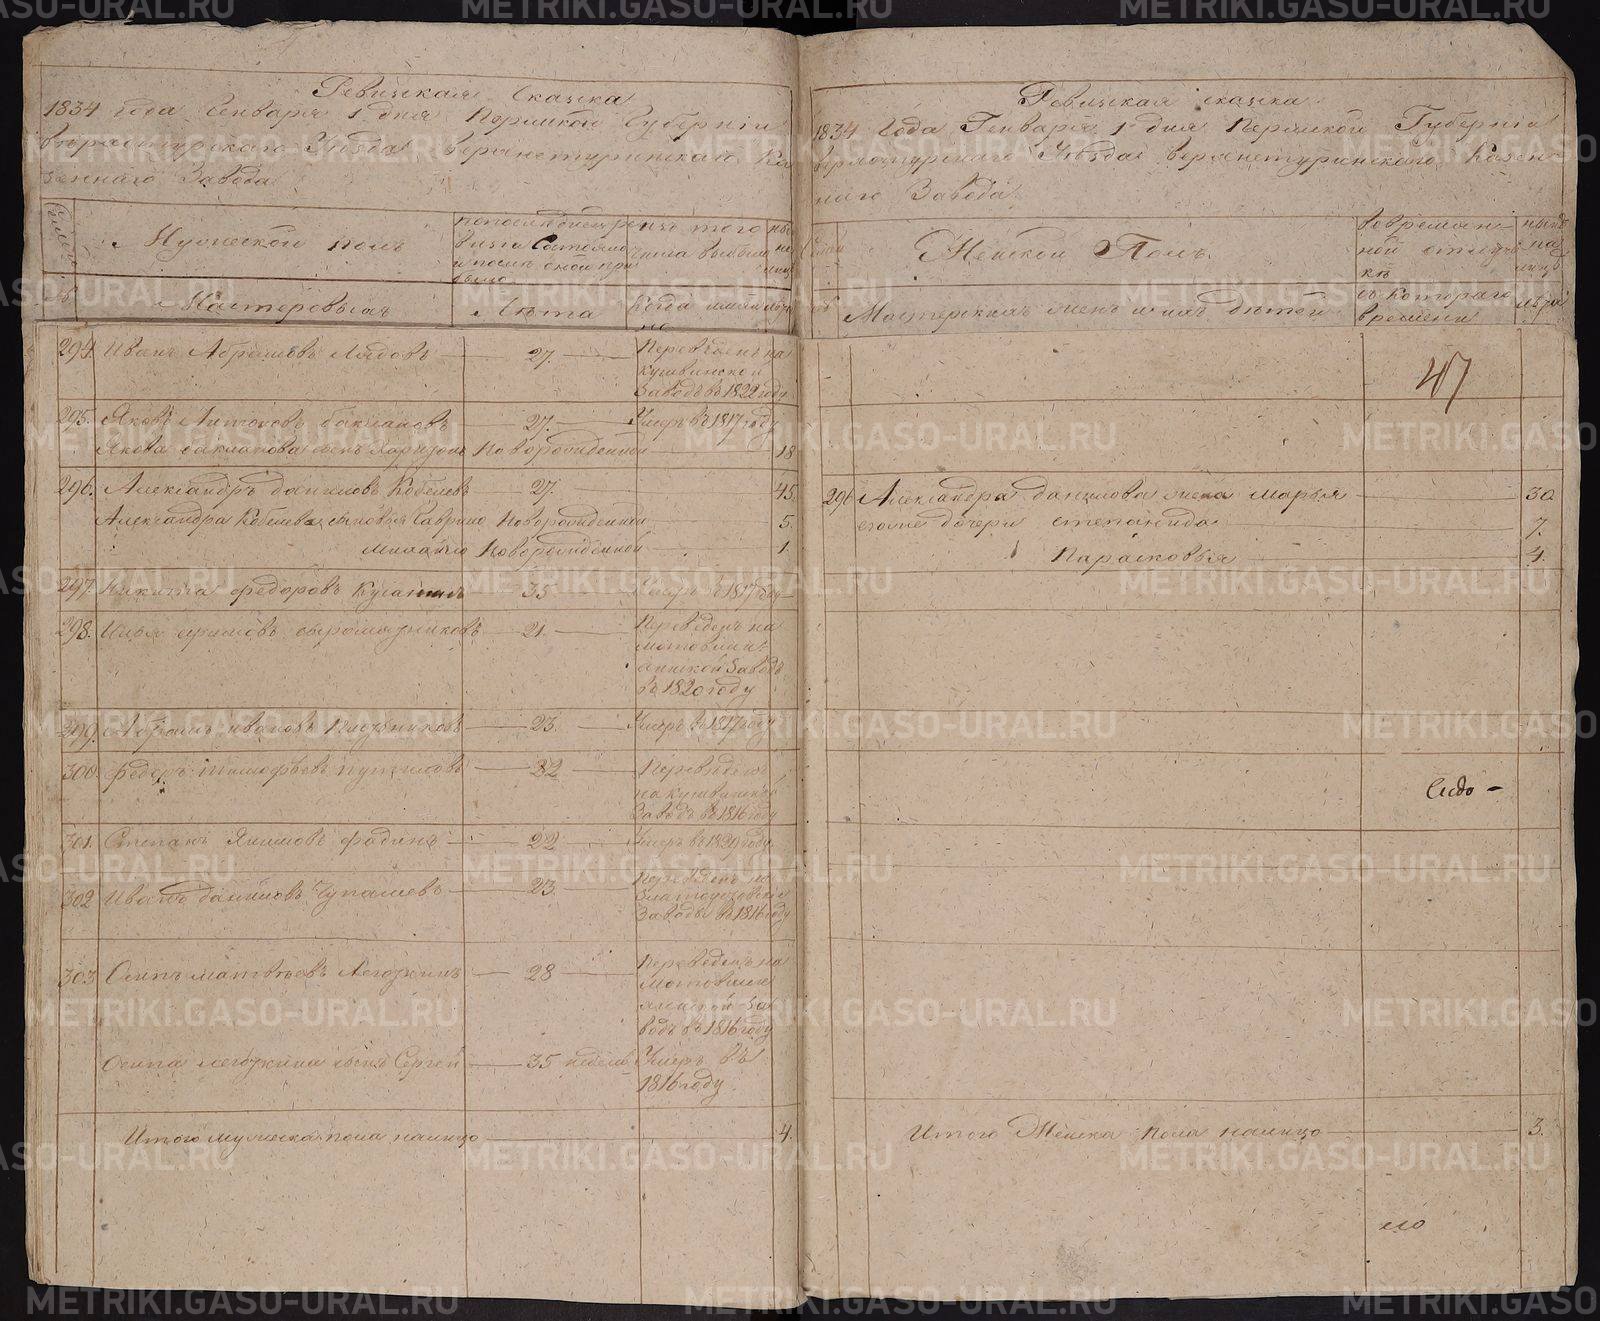 Ревижская сказка
1834 года Генваря 1 дня Пермской Губернии
Верхотурского Уезда Верхнетуринскаго Ка
зеннаго Завода
Мужеской полъ
Мастеровыя
Лѣта
294. Иванъ Абрамовъ Лядовъ — 27. — Переведенъ на
кушвинской
Заводъ въ 1822 году
295. Яковъ Антоновъ баклановъ — 27. — Умеръ въ 1817 году
Якова бакланова сынъ Новорожденной — 18
296. Александръ даниловъ Кобелевъ — 27. — 45.
Александра Кобелева сыновья Гаврило Новорожденной — 5.
Михайло Новорожденной — 1.
297. Никита федоровъ — 35 — Умеръ въ 1817 году
298. Илья сыромятниковъ — 21. — Переведенъ на
мотовили-
хинской Заводъ
въ 1820 году
299. Абрамъ ивановъ — 23. — Умеръ въ 1817 году
300. федоръ тимофѣевъ путиловъ — 22 — Переведенъ
на кушвинской
Заводъ въ 1816 году
301. Степанъ Якимовъ фадинъ — 22 — Умеръ въ 1829 году
302 Иванъ даниловъ Чупалевъ — 23. — Переведенъ на
Златоустовской
Заводъ въ 1816 году
303 Осипъ матвѣевъ Леготкинъ — 28 — Переведенъ на
Мотовили
хинской За
водъ въ 1816 году
Осипа леготкина сынъ Сергей — 35 недель Умеръ въ
1816 году.
Итого мужеска пола налицо — 4.
Ревижская сказка
1834 года Генваря 1 дня Пермской Губернии
верхотурскаго Уѣзда верхнетуринскаго Казен
наго Завода
Женской Полъ.
Мастерскихъ женъ и ихъ дѣтей
47
296 Александра данилова жена марья — 30
ево же дочери степанида — 7.
Парасковья — 4.
Итого Женска пола налицо — 3.
METRIKI.GASO-URAL.RU